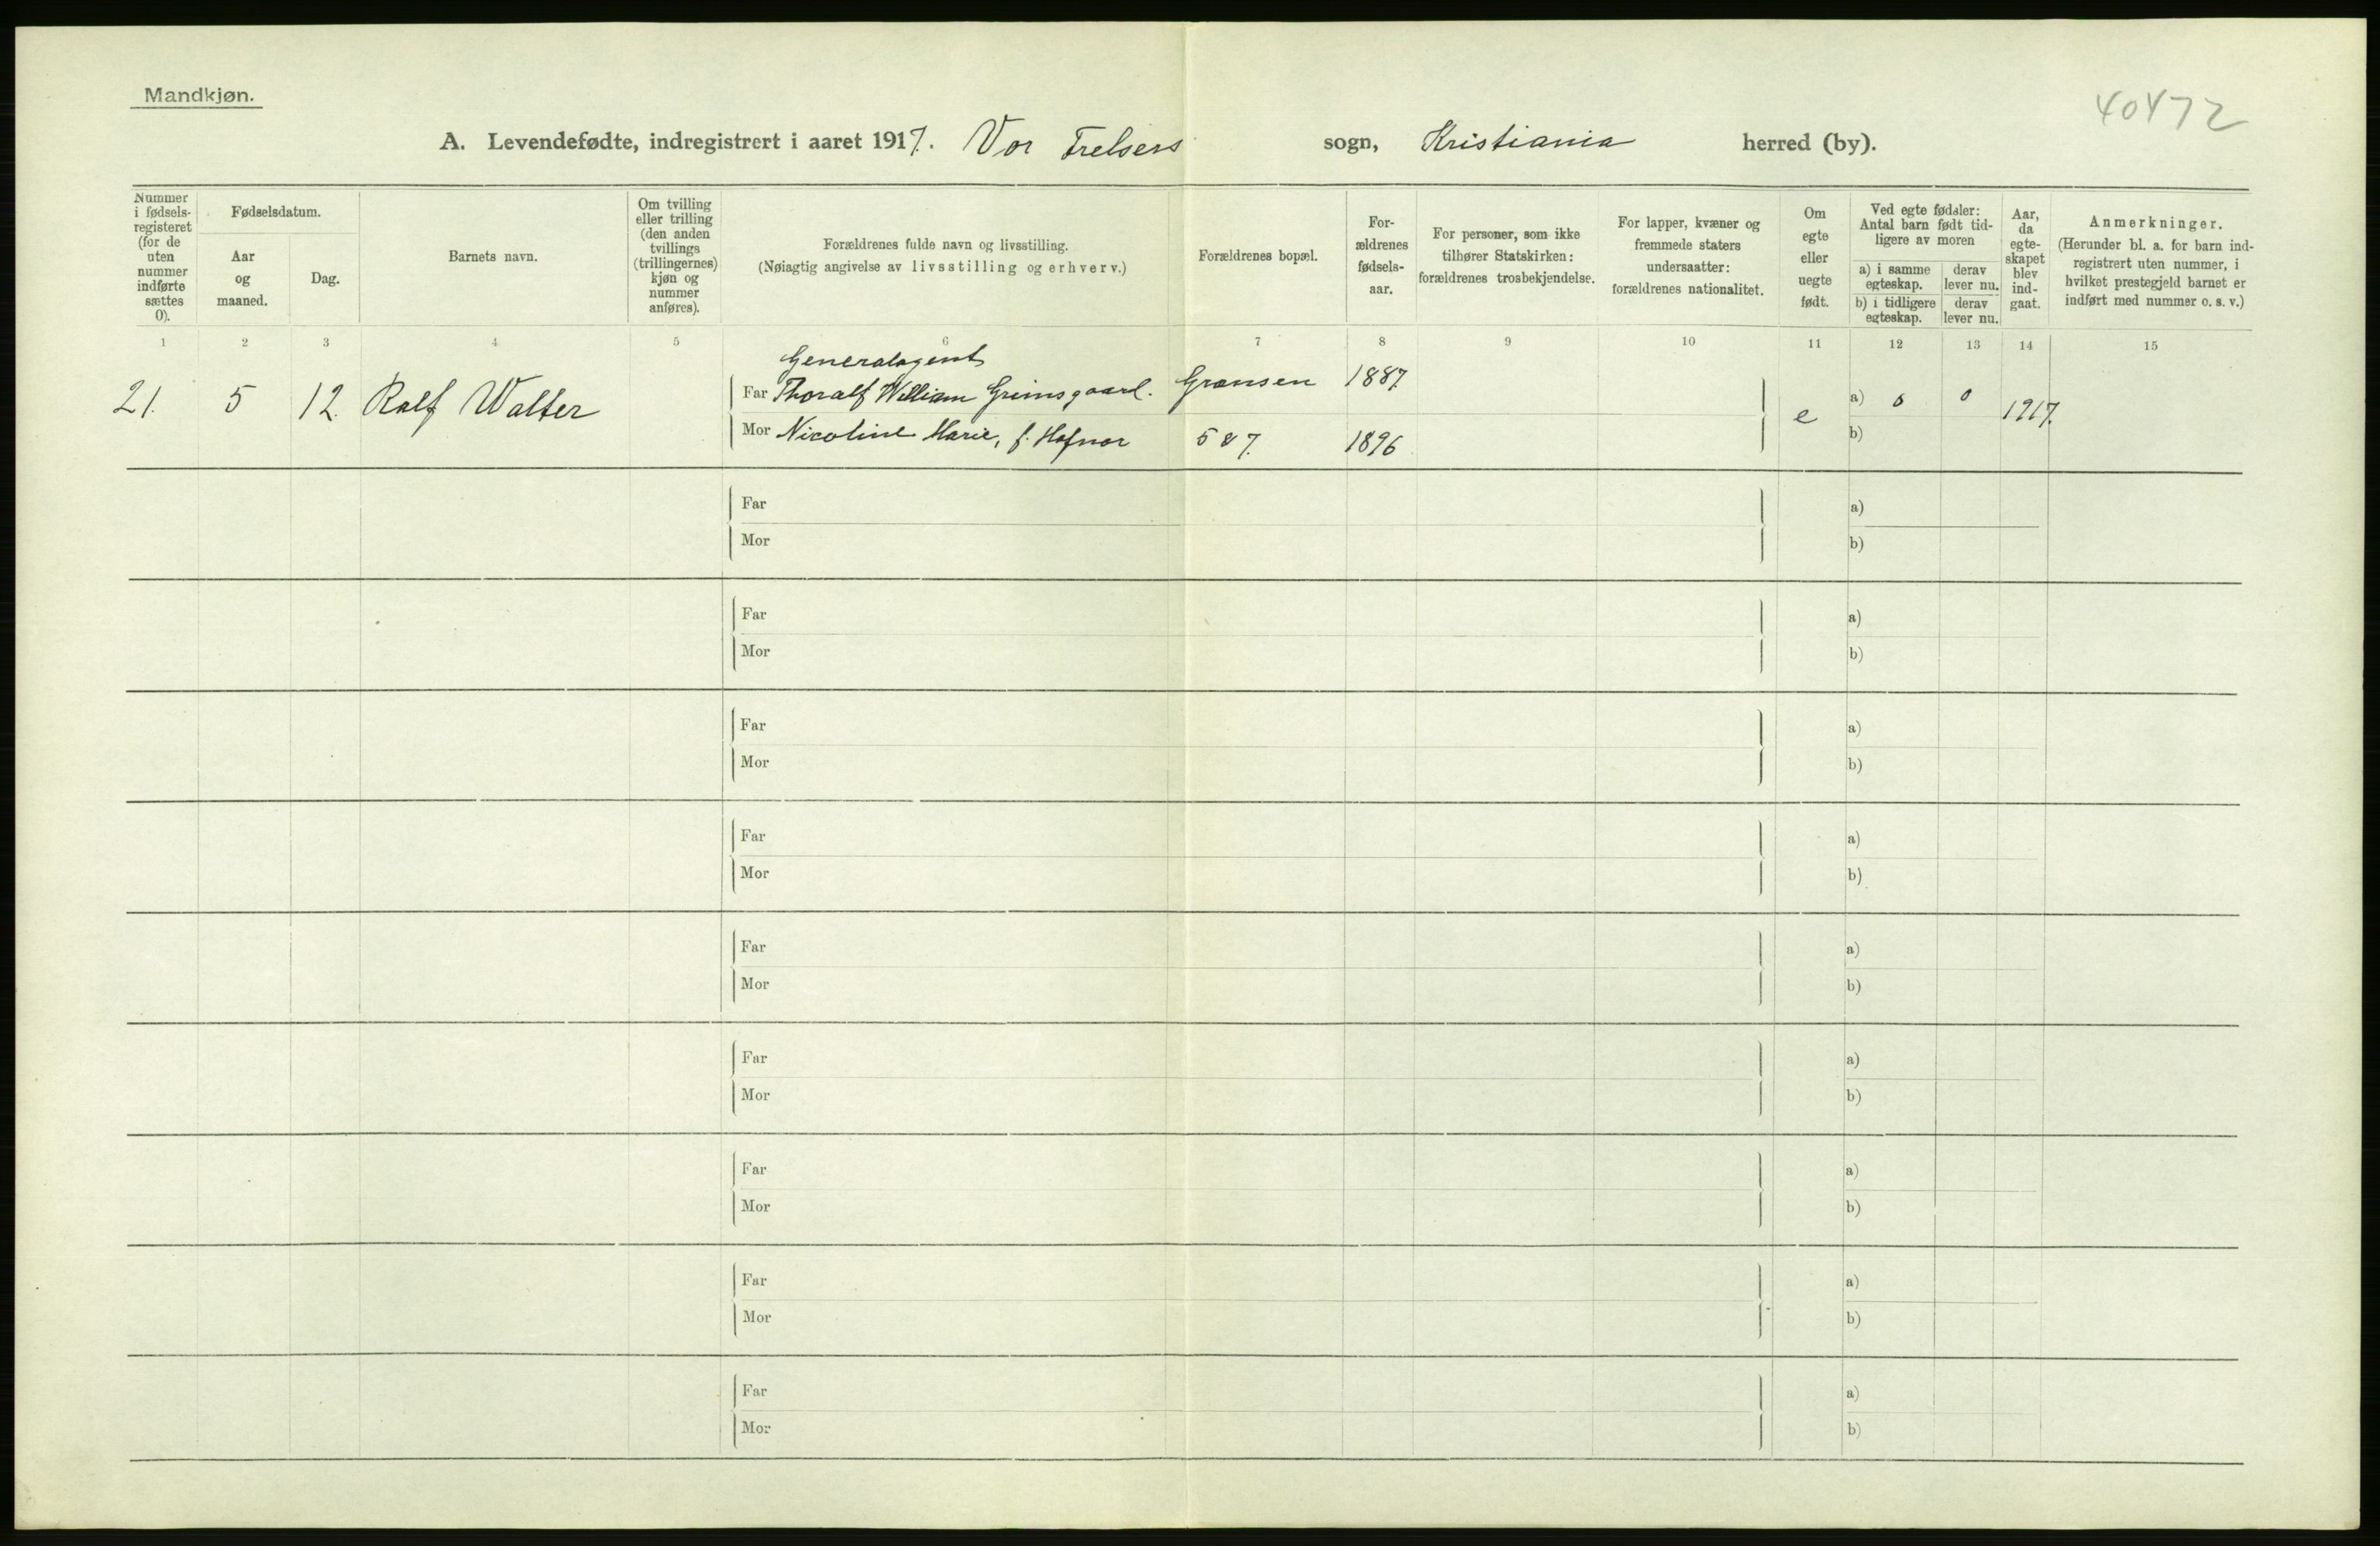 Mandkjøn.
40472
A. Levendefødte, indregistrert i aaret 1917. Vor Frelsers sogn, Kristiania herred (by).
Nummer
i fødsels-
registeret
(for de
uten
nummer
indførte
sættes
0).
Fødselsdatum.
Aar
og
maaned.
Dag.
Barnets navn.
Om tvilling
eller trilling
(den anden
tvillings
(trillingernes)
kjøn og
nummer
anføres).
Forældrenes fulde navn og livsstilling.
(Nøiagtig angivelse av livsstilling og erhverv.)
Forældrenes bopæl.
For-
ældrenes
fødsels-
aar.
For personer, som ikke
tilhører Statskirken:
forældrenes trosbekjendelse.
For lapper, kvæner og
fremmede staters
undersaatter:
forældrenes nationalitet.
Om
egte
eller
uegte
født.
Ved egte fødsler:
Antal barn født tid-
ligere av moren
a) i samme
egteskap.
derav
lever nu.
b) i tidligere
egteskap.
derav
lever nu.
Aar,
da
egte-
skapet
blev
ind-
gaat.
Anmerkninger.
(Herunder bl. a. for barn ind-
registrert uten nummer, i
hvilket prestegjeld barnet er
indført med nummer o. s. v.)
1 2 3 4 5 6 7 8 9 10 11 12 13 14 15
Generalagent
21. 5 12. Ralf Walter Far Thoralf William Grimsgaard. Grænsen 1887. e a) 0 0 1917.
Mor Nicoline Marie, f. Hafnor 5 &7. 1896 b)
Far a)
Mor b)
Far a)
Mor b)
Far a)
Mor b)
Far a)
Mor b)
Far a)
Mor b)
Far a)
Mor b)
Far a)
Mor b)
Far a)
Mor b)
Far a)
Mor b)